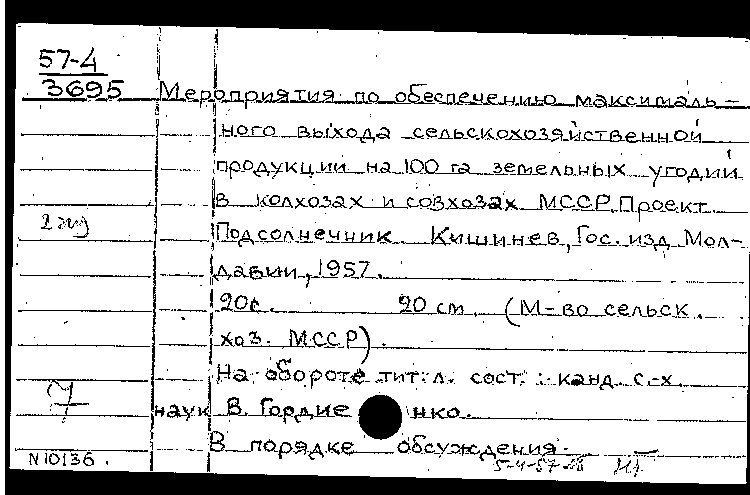 57-4
3695 Мероприятия по обеспечению максималь-
ного выхода сельскохозяйственной
продукции на 100 га земельных угодий
в колхозах и совхозах МССР. Проект.
2 экз
Подсолнечник. Кишинев, Гос. изд. Мол-
давии, 1957.
20с. 20 см. (М-во сельск.
хоз. МССР).
На обороте тит. л. сост.: канд. с.-х.
наук В. Гордиенко.
В порядке обсуждения.
N 10136.